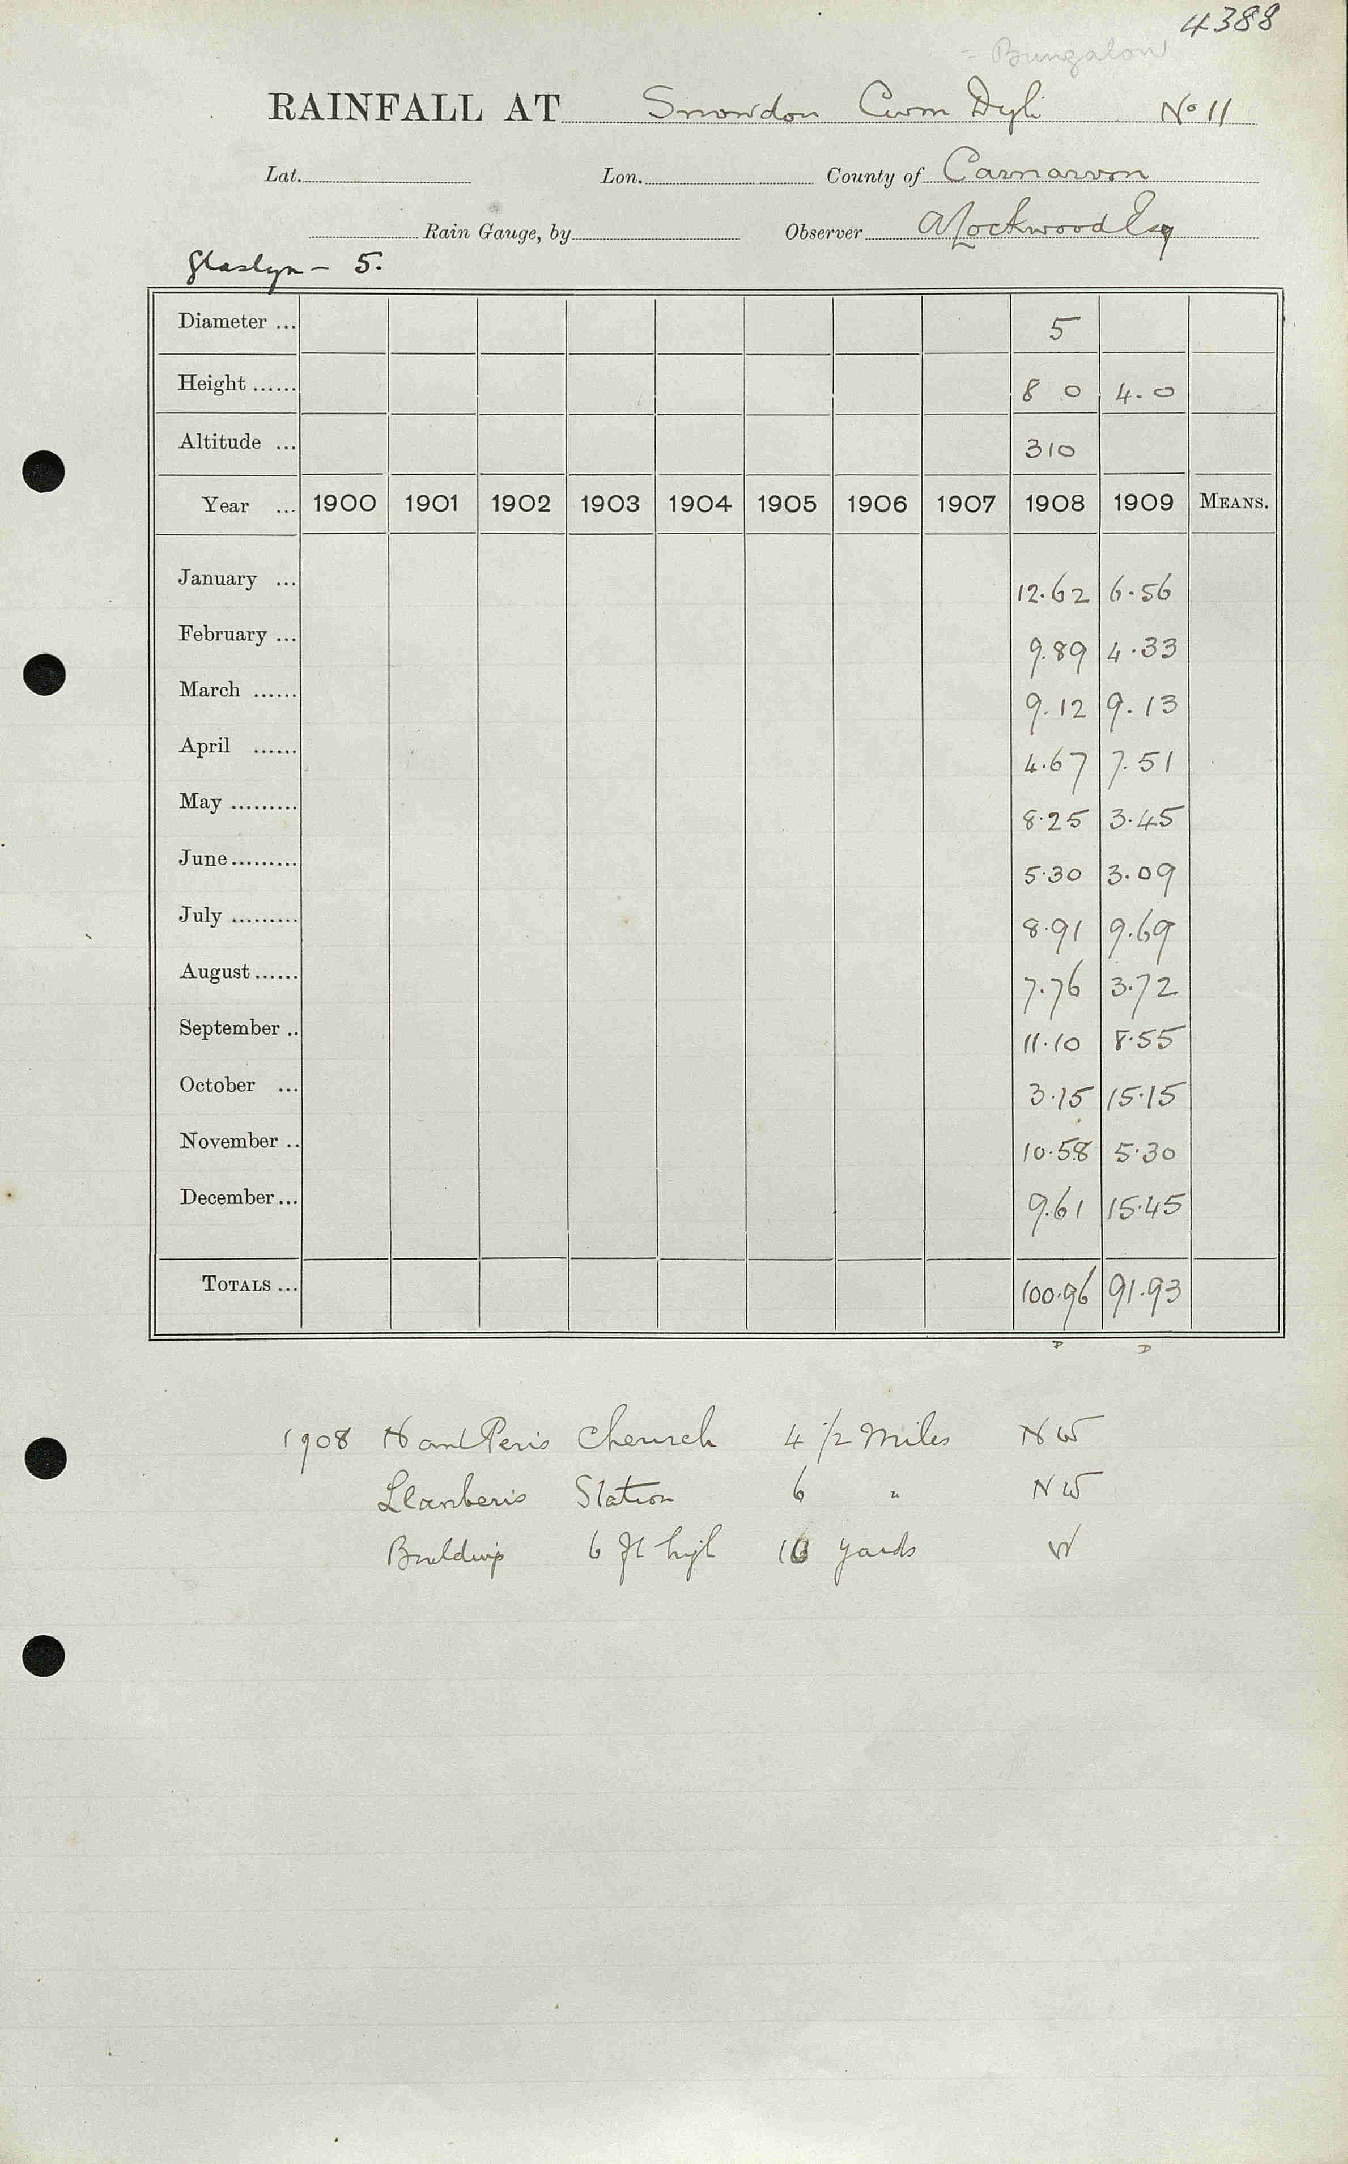 4388
= Bungalow
RAINFALL AT Snowdon Cwm Dyli No 11
Lat. Lon. County of Carnarvon
Rain Gauge, by Observer A Lockwood Esq
Glaslyn - 5.
Diameter ... 5
Height ...... 8 0 4.0
Altitude ... 310
Year ... 1900 1901 1902 1903 1904 1905 1906 1907 1908 1909 MEANS.
January ... 12.62 6.56
February ... 9.89 4.33
March ...... 9.12 9.13
April ...... 4.67 7.51
May ......... 8.25 3.45
June ......... 5.30 3.09
July ......... 8.91 9.69
August ...... 7.76 3.72
September .. 11.10 8.55
October ... 3.15 15.15
November .. 10.58 5.30
December ... 9.61 15.45
TOTALS ... 100.96 91.93
D D
1908 Nant Peris Church 4 1/2 Miles NW
Llanberis Station 6 " NW
Building 6 ft high yards W